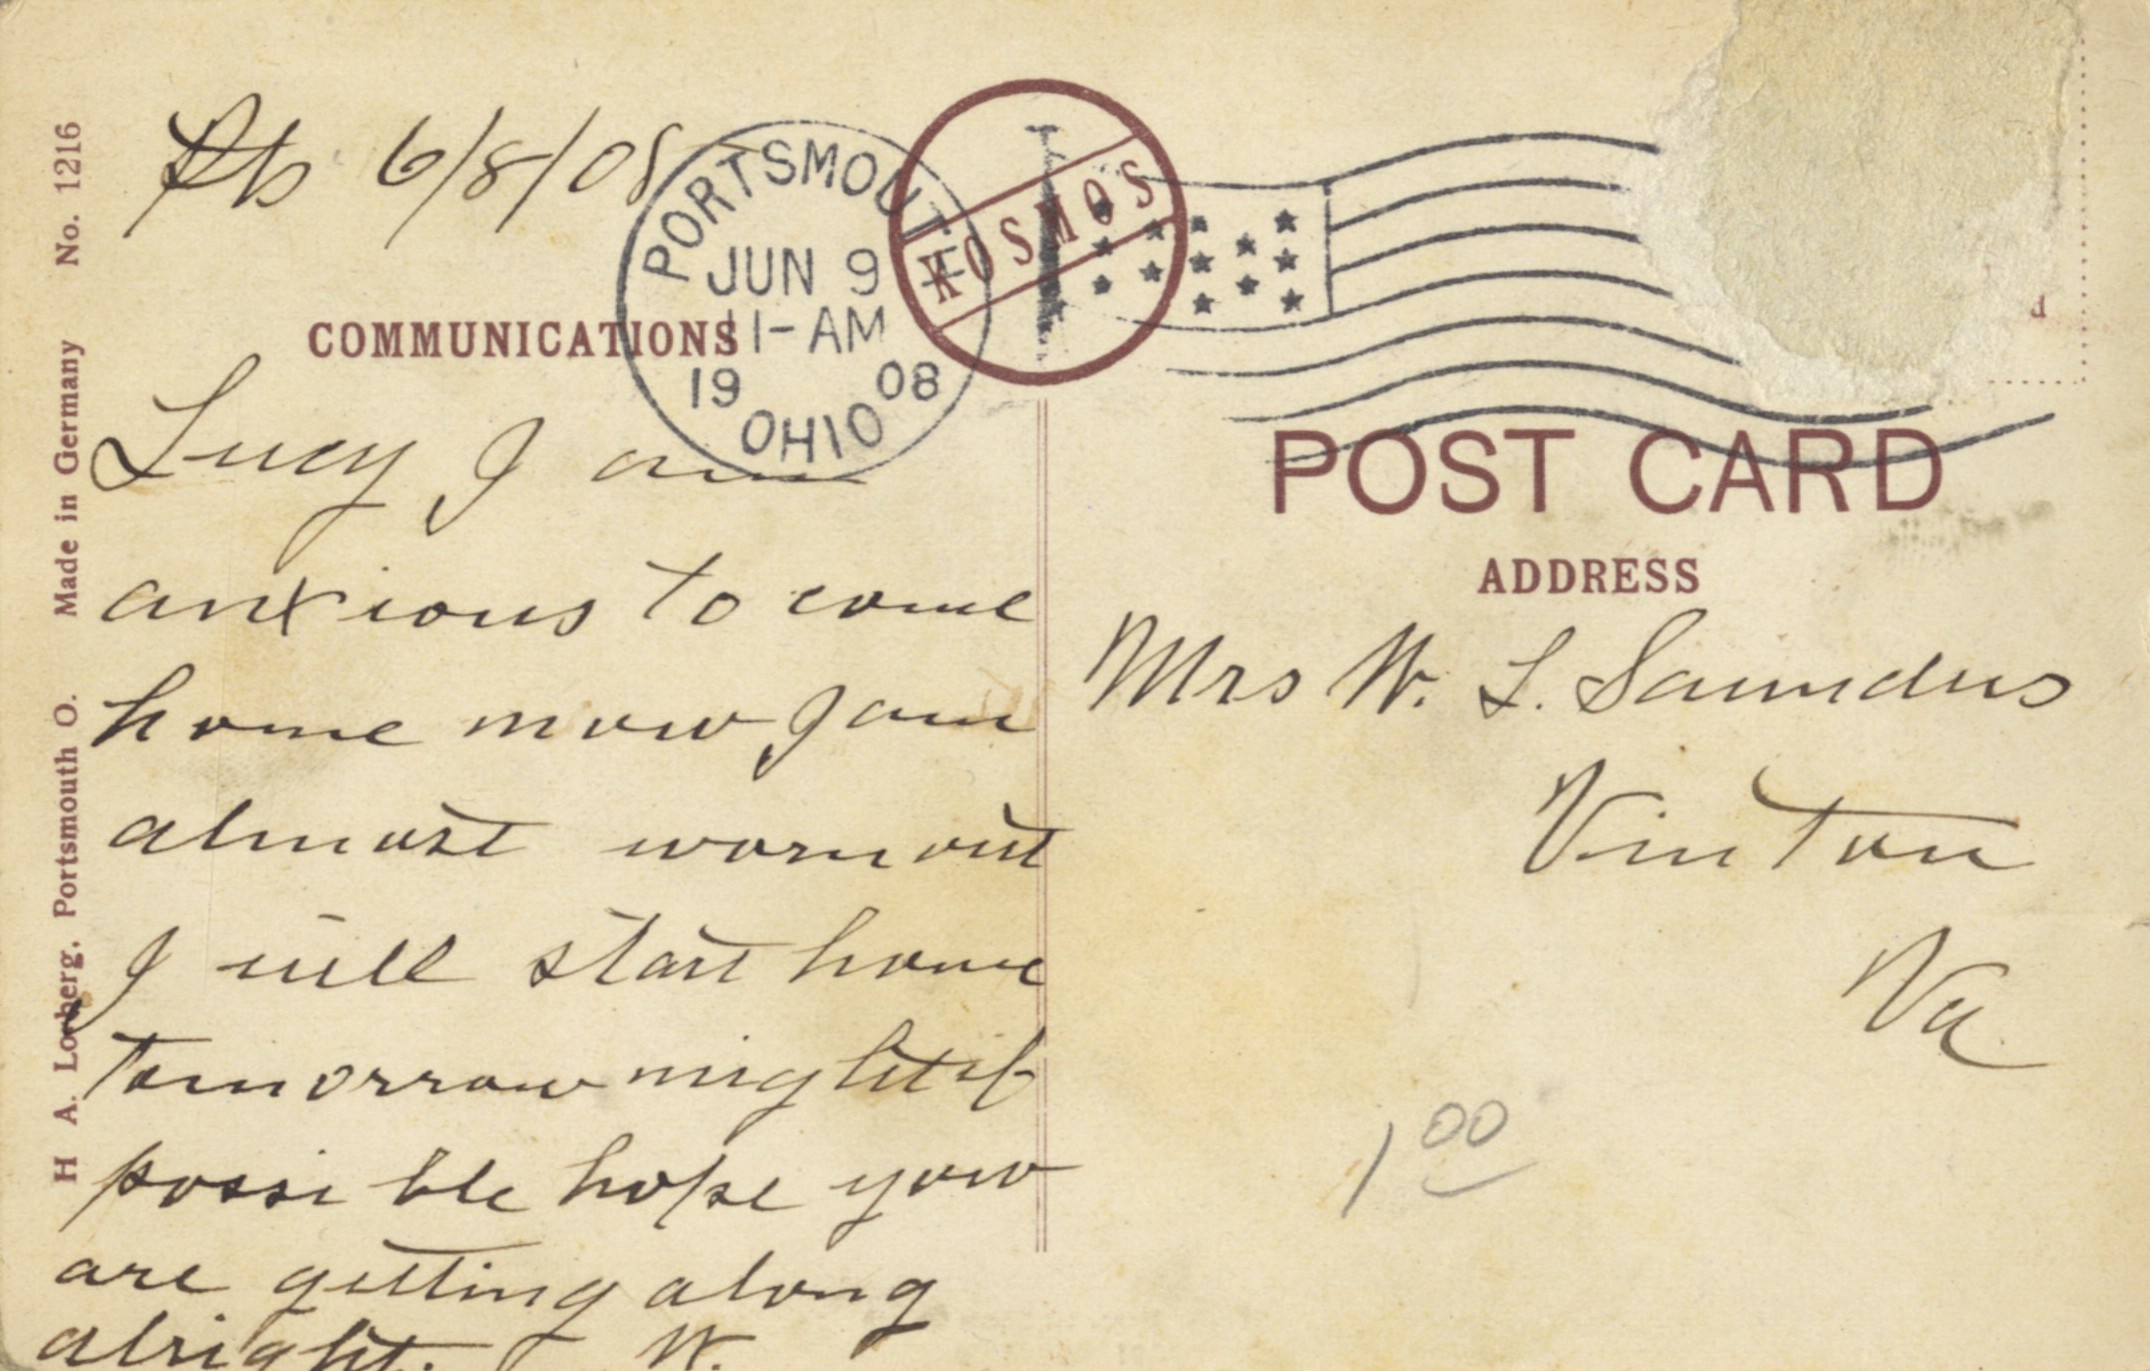 6/8/08
PORTSMOUTH
JUN 9
11-AM
19 08
OHIO
KOSMOS
COMMUNICATIONS
Lucy I am
anxious to come
home now I am
almost worn out
I will start home
tomorrow night if
possible hope you
are getting along
alright. W.
POST CARD
ADDRESS
Mrs W. L. Saunders
Vinton
Va
1 00
H A. Lorberg, Portsmouth O. Made in Germany No. 1216